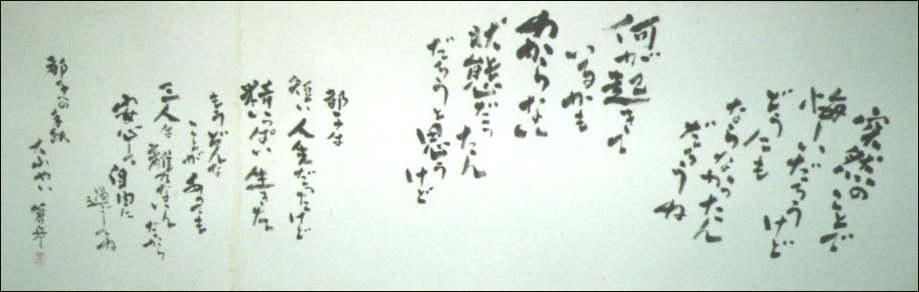 突然の
ことで
悔しいだろうけど
どうにも
ならなかったん
だろうね
何が起きて
いるかも
わからない
状態だったん
だろうと思うけど
都子は
短い人生だったけど
精いっぱい生きた
もうどんな
ことがあっても
三人は離れないんだから
安心して自由に
過してね
都子への手紙